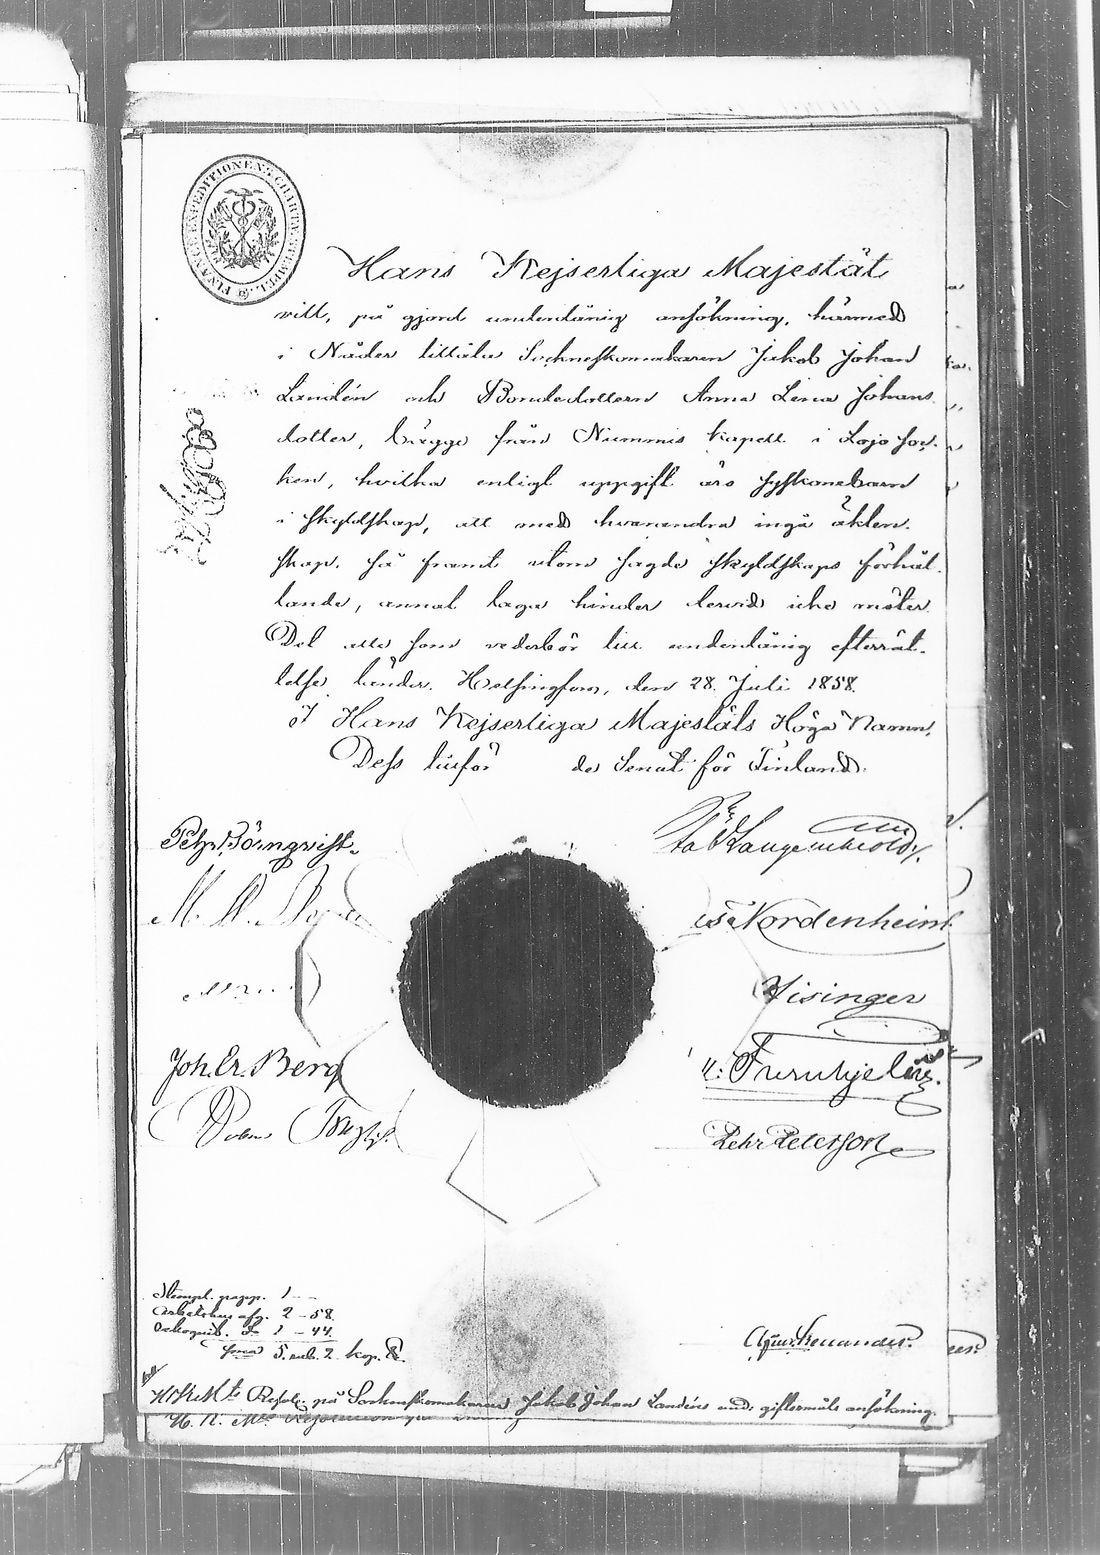 FINANCE EXPEDITIONENS CHARTÆ STEMPEL
Hans Kejserliga Majestät
vill, på gjord underdånig ansökning, härmed
i Nåder tillåta Socknesskomakaren Jakob Johan
Landén och Bondedottern Anna Lena Johans
dotter, begge från Nummis kapell i Lojo Soc-
ken, hvilka enligt uppgift äro syskonebarn
i skyldskap, att med hvarandra ingå äkten-
skap, så framt utom sagde skyldskaps förhål-
lande, annat laga hinder dervid icke möter.
Det alle som vederbör till underdånig efterrät-
telse länder. Helsingfors, den 28. Juli 1858.
I Hans Kejserliga Majestäts Höga Namn,
Dess tillför de Senat för Finland.
Pehr Börnqvist
Langenskiöld
Nordenheim
M.
Gisinger
Joh. Er. Berg
Furuhjelm.
Pehr Peterson
Stempl. papp. 1 - -
Arbetshus afg. 2 - 58.
1 - 44.
5. rub. 2 kop. S.
HKMts Resol. på Sockneskomakaren Jakob Johan Landéns und. giftermåls ansökning.